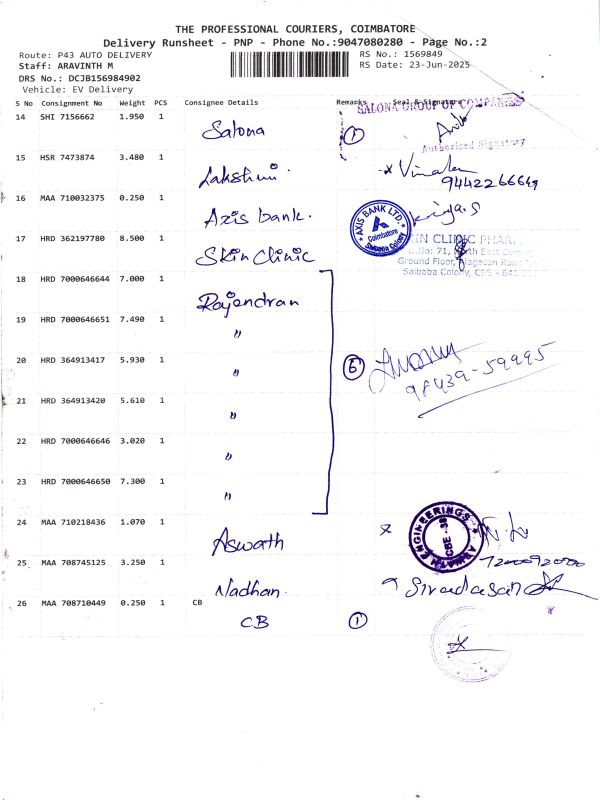 THE PROFESSIONAL COURIERS, COIMBATORE
Delivery Runsheet - PNP - Phone No.:9047080280 - Page No.:2
Route: P43 AUTO DELIVERY
RS No.: 1569849
Staff: ARAVINTH M
RS Date: 23-Jun-2025
DRS No.: DCJB156984902
Vehicle: EV Delivery
S No Consignment No Weight PCS Consignee Details Remarks Seal & Signature
SALONA GROUP OF COMPANIES
14 SHI 7156662 1.950 1
Salona 1
Authorised Signatory
15 HSR 7473874 3.480 1
Lakshmi. x Vimala
9442266649
16 MAA 710032375 0.250 1
Axis bank.
AXIS BANK LTD.
Coimbatore
Saibaba Colony
17 HRD 362197780 8.500 1
Skin Clinic
SKIN CLINIC
No: 71, North East Corner,
Ground Floor,
Saibaba Colony, CBE - 641
18 HRD 7000646644 7.000 1
Rajendran
19 HRD 7000646651 7.490 1
"
20 HRD 364913417 5.930 1
" 6
98439-59995
21 HRD 364913420 5.610 1
"
22 HRD 7000646646 3.020 1
"
23 HRD 7000646650 7.300 1
"
24 MAA 710218436 1.070 1
Aswath x
ENGINEERINGS
CBE - 38
25 MAA 708745125 3.250 1
Nadhan. Sivadasan
26 MAA 708710449 0.250 1 CB
CB 1